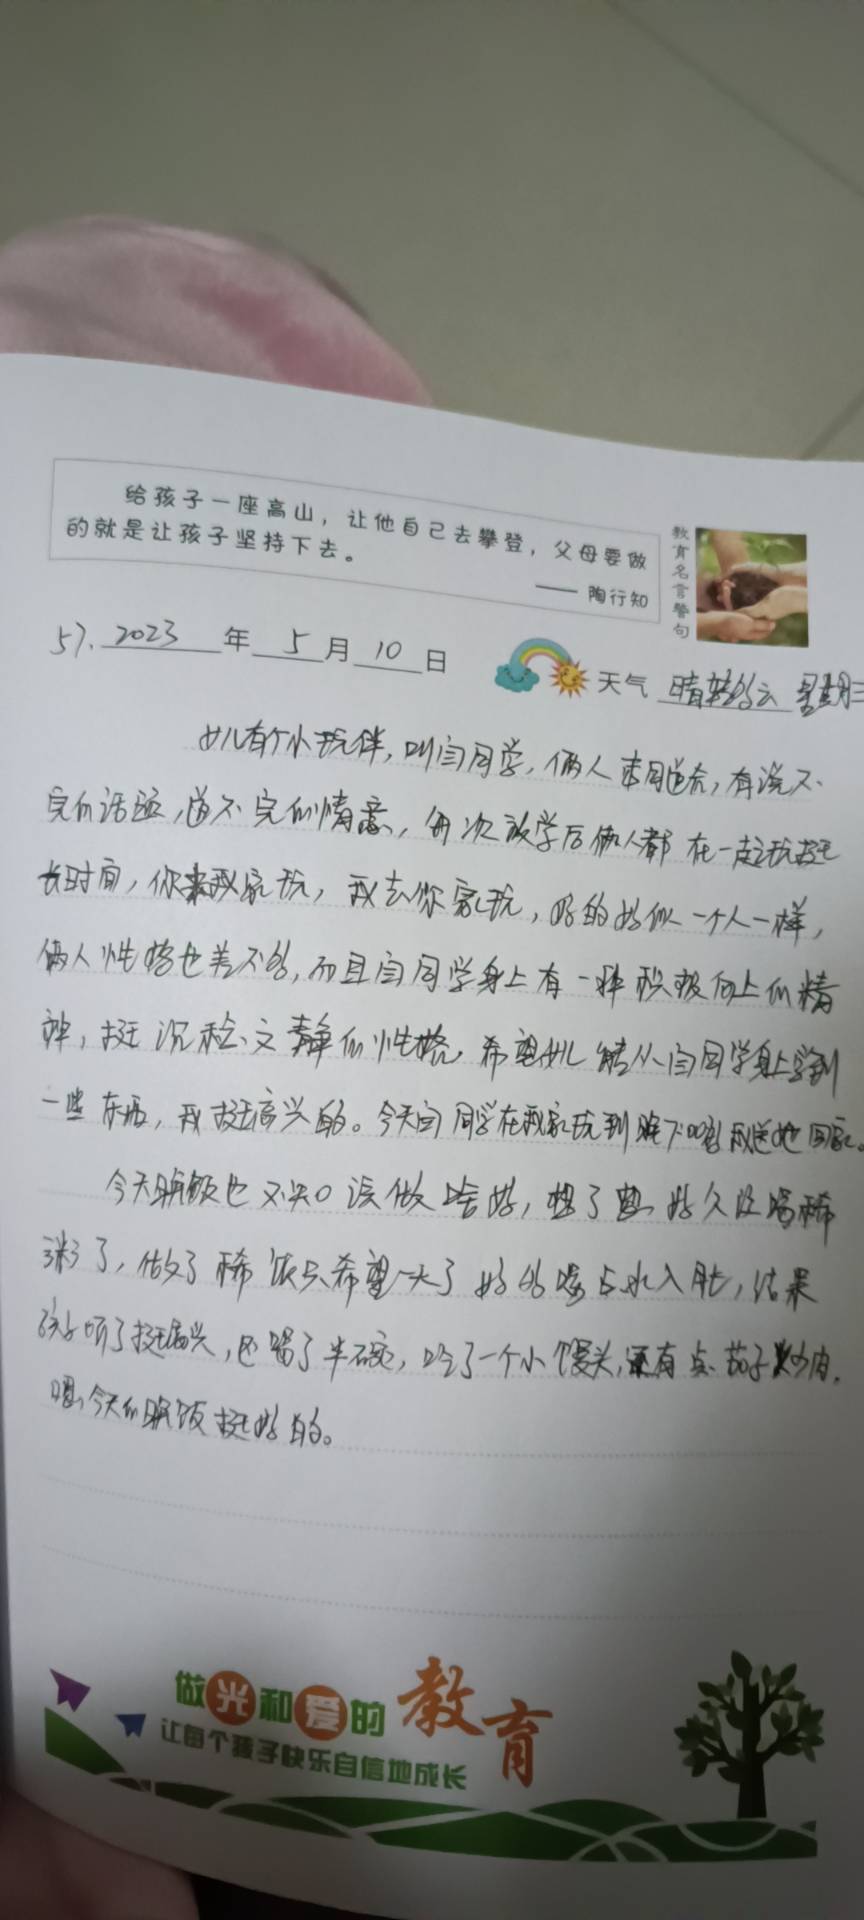 给孩子一座高山，让他自己去攀登，父母要做
的就是让孩子坚持下去。
—— 陶行知
教育名言警句
57. 2023 年 5 月 10 日
天气 晴转多云 星期三
女儿有个小玩伴，叫闫同学，俩人志同道合，有说不
完的话题，道不完的情意，每次放学后俩人都在一起玩挺
长时间，你来我家玩，我去你家玩，好的好似一个人一样，
俩人性格也差不多，而且闫同学身上有一种积极向上的精
神，挺沉稳、文静的性格，希望女儿能从闫同学身上学到
一些东西，我挺高兴的。今天闫同学在我家玩到晚下 我送她回家。
今天晚饭也不知该做啥好，想了想好久没喝稀
粥了，做了稀饭只希望一天了好多喝点水入肚，结果
孩子听了挺高兴，还喝了半碗，吃了一个小馒头，还有点茄子炒肉，
嗯，今天的晚饭挺好的。
做光和爱的教育
让每个孩子快乐自信地成长